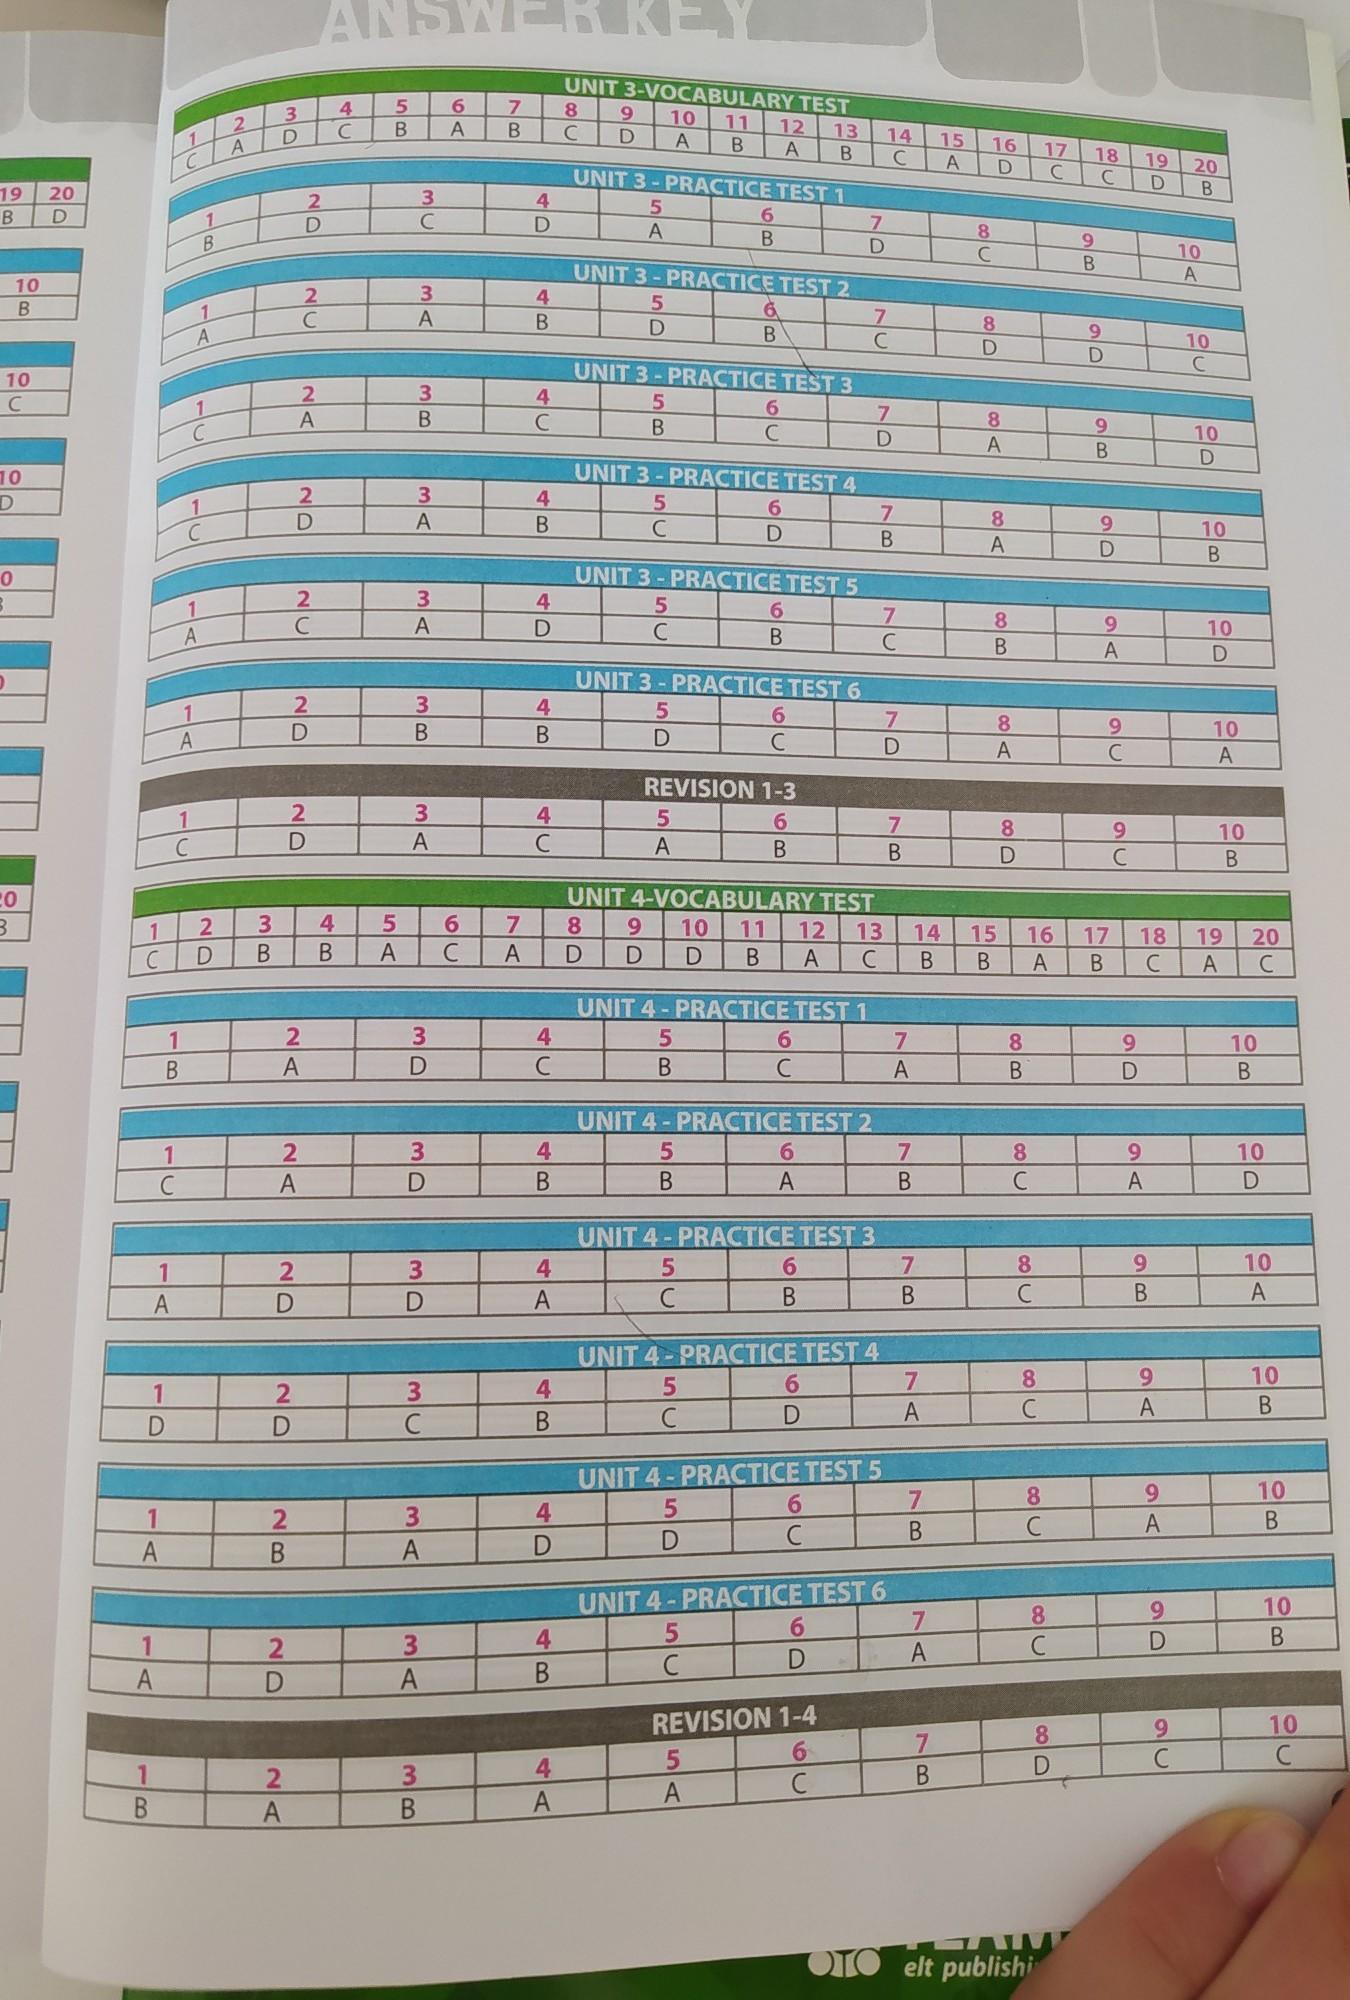 ANSWER KEY
19 20
B D
10
B
10
C
10
D
UNIT 3-VOCABULARY TEST
1 2 3 4 5 6 7 8 9 10 11 12 13 14 15 16 17 18 19 20
C A D C B A B C D A B A B C A D C C D B
UNIT 3 - PRACTICE TEST 1
1 2 3 4 5 6 7 8 9 10
B D C D A B D C B A
UNIT 3 - PRACTICE TEST 2
1 2 3 4 5 6 7 8 9 10
A C A B D B C D D C
UNIT 3 - PRACTICE TEST 3
1 2 3 4 5 6 7 8 9 10
C A B C B C D A B D
UNIT 3 - PRACTICE TEST 4
1 2 3 4 5 6 7 8 9 10
C D A B C D B A D B
UNIT 3 - PRACTICE TEST 5
1 2 3 4 5 6 7 8 9 10
A C A D C B C B A D
UNIT 3 - PRACTICE TEST 6
1 2 3 4 5 6 7 8 9 10
A D B B D C D A C A
REVISION 1-3
1 2 3 4 5 6 7 8 9 10
C D A C A B B D C B
UNIT 4-VOCABULARY TEST
1 2 3 4 5 6 7 8 9 10 11 12 13 14 15 16 17 18 19 20
C D B B A C A D D D B A C B B A B C A C
UNIT 4 - PRACTICE TEST 1
1 2 3 4 5 6 7 8 9 10
B A D C B C A B D B
UNIT 4 - PRACTICE TEST 2
1 2 3 4 5 6 7 8 9 10
C A D B B A B C A D
UNIT 4 - PRACTICE TEST 3
1 2 3 4 5 6 7 8 9 10
A D D A C B B C B A
UNIT 4 - PRACTICE TEST 4
1 2 3 4 5 6 7 8 9 10
D D C B C D A C A B
UNIT 4 - PRACTICE TEST 5
1 2 3 4 5 6 7 8 9 10
A B A D D C B C A B
UNIT 4 - PRACTICE TEST 6
1 2 3 4 5 6 7 8 9 10
A D A B C D A C D B
REVISION 1-4
1 2 3 4 5 6 7 8 9 10
B A B A A C B D C C
elt publishi